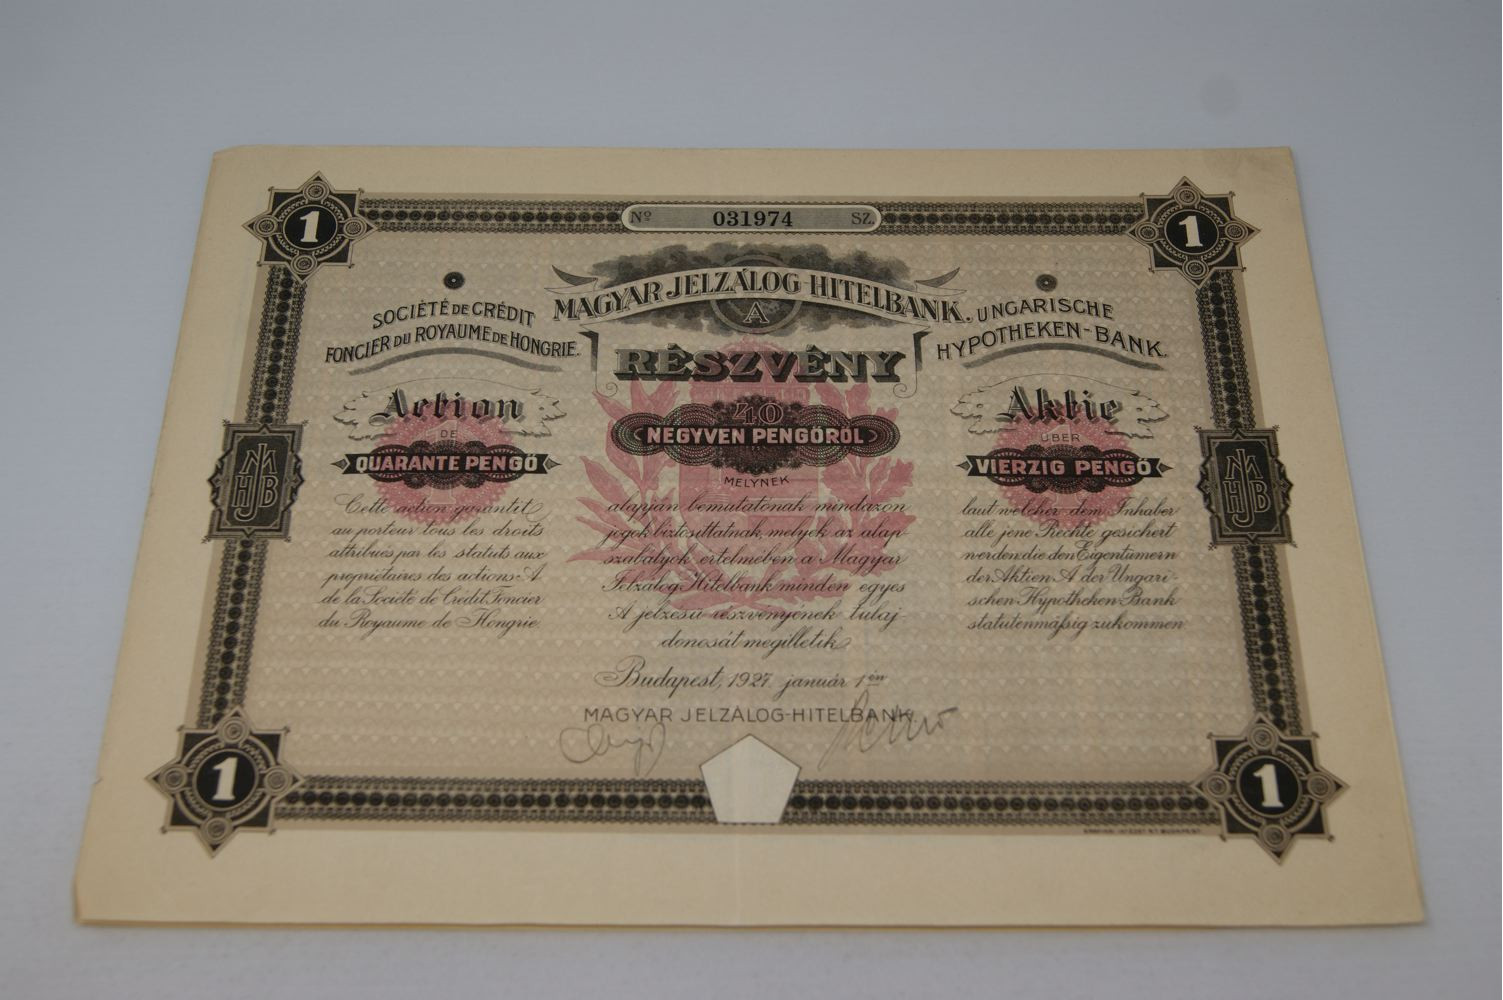 1
Nº 031974 SZ.
1
MAGYAR JELZÁLOG-HITELBANK.
A
RÉSZVÉNY
40
NEGYVEN PENGŐRŐL
MELYNEK
alapján bemutatónak mindazon
jogok biztosíttatnak, melyek az alap-
szabályok értelmében a Magyar
Jelzálog Hitelbank minden egyes
A jelzésű részvényének tulaj-
donosát megilletik.
Budapest, 1927. január 1-én
MAGYAR JELZÁLOG-HITELBANK.
SOCIÉTÉ DE CRÉDIT
FONCIER DU ROYAUME DE HONGRIE.
Action
DE
QUARANTE PENGŐ
Cette action garantit
au porteur tous les droits
attribués par les statuts aux
propriétaires des actions A
de la Société de Crédit Foncier
du Royaume de Hongrie.
UNGARISCHE
HYPOTHEKEN-BANK.
Aktie
ÜBER
VIERZIG PENGŐ
laut welcher dem Inhaber
alle jene Rechte gesichert
werden die den Eigentümern
der Aktien A der Ungari-
schen Hypotheken-Bank
statutenmäßig zukommen
MJHB
MJHB
1
1